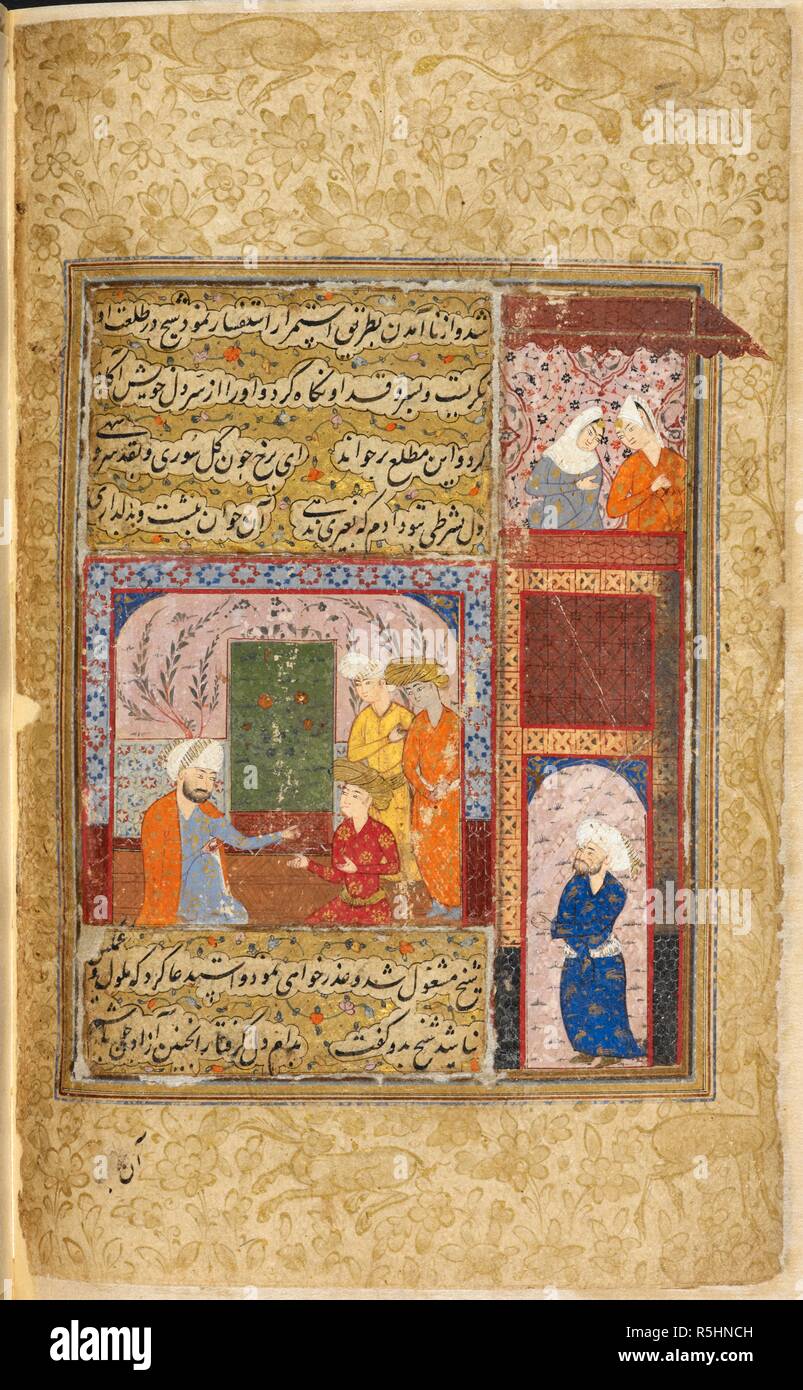 شد و از نا آمدن بطریق استمرار استفسار نمود شیخ در طلعت او
نگریست و بسرو قد او نگاه کرد و او را از سر دل خویش آگاه
کرد و این مطلع بر خواند ای برخ چون گل سوری و بقد سرو سهی
دل شرطی بتو دادم که بغیری ندهی آن جوان بنشست و بدلداری
شیخ مشغول شد و عذر خواهی نمود و استدعا کرد که ملول
نباشد شیخ بدو گفت بدام دل گرفتار انجنین آزاد
آن
alamy
alamy
a
a
a
alamy
Image ID: R5HNCH
www.alamy.com